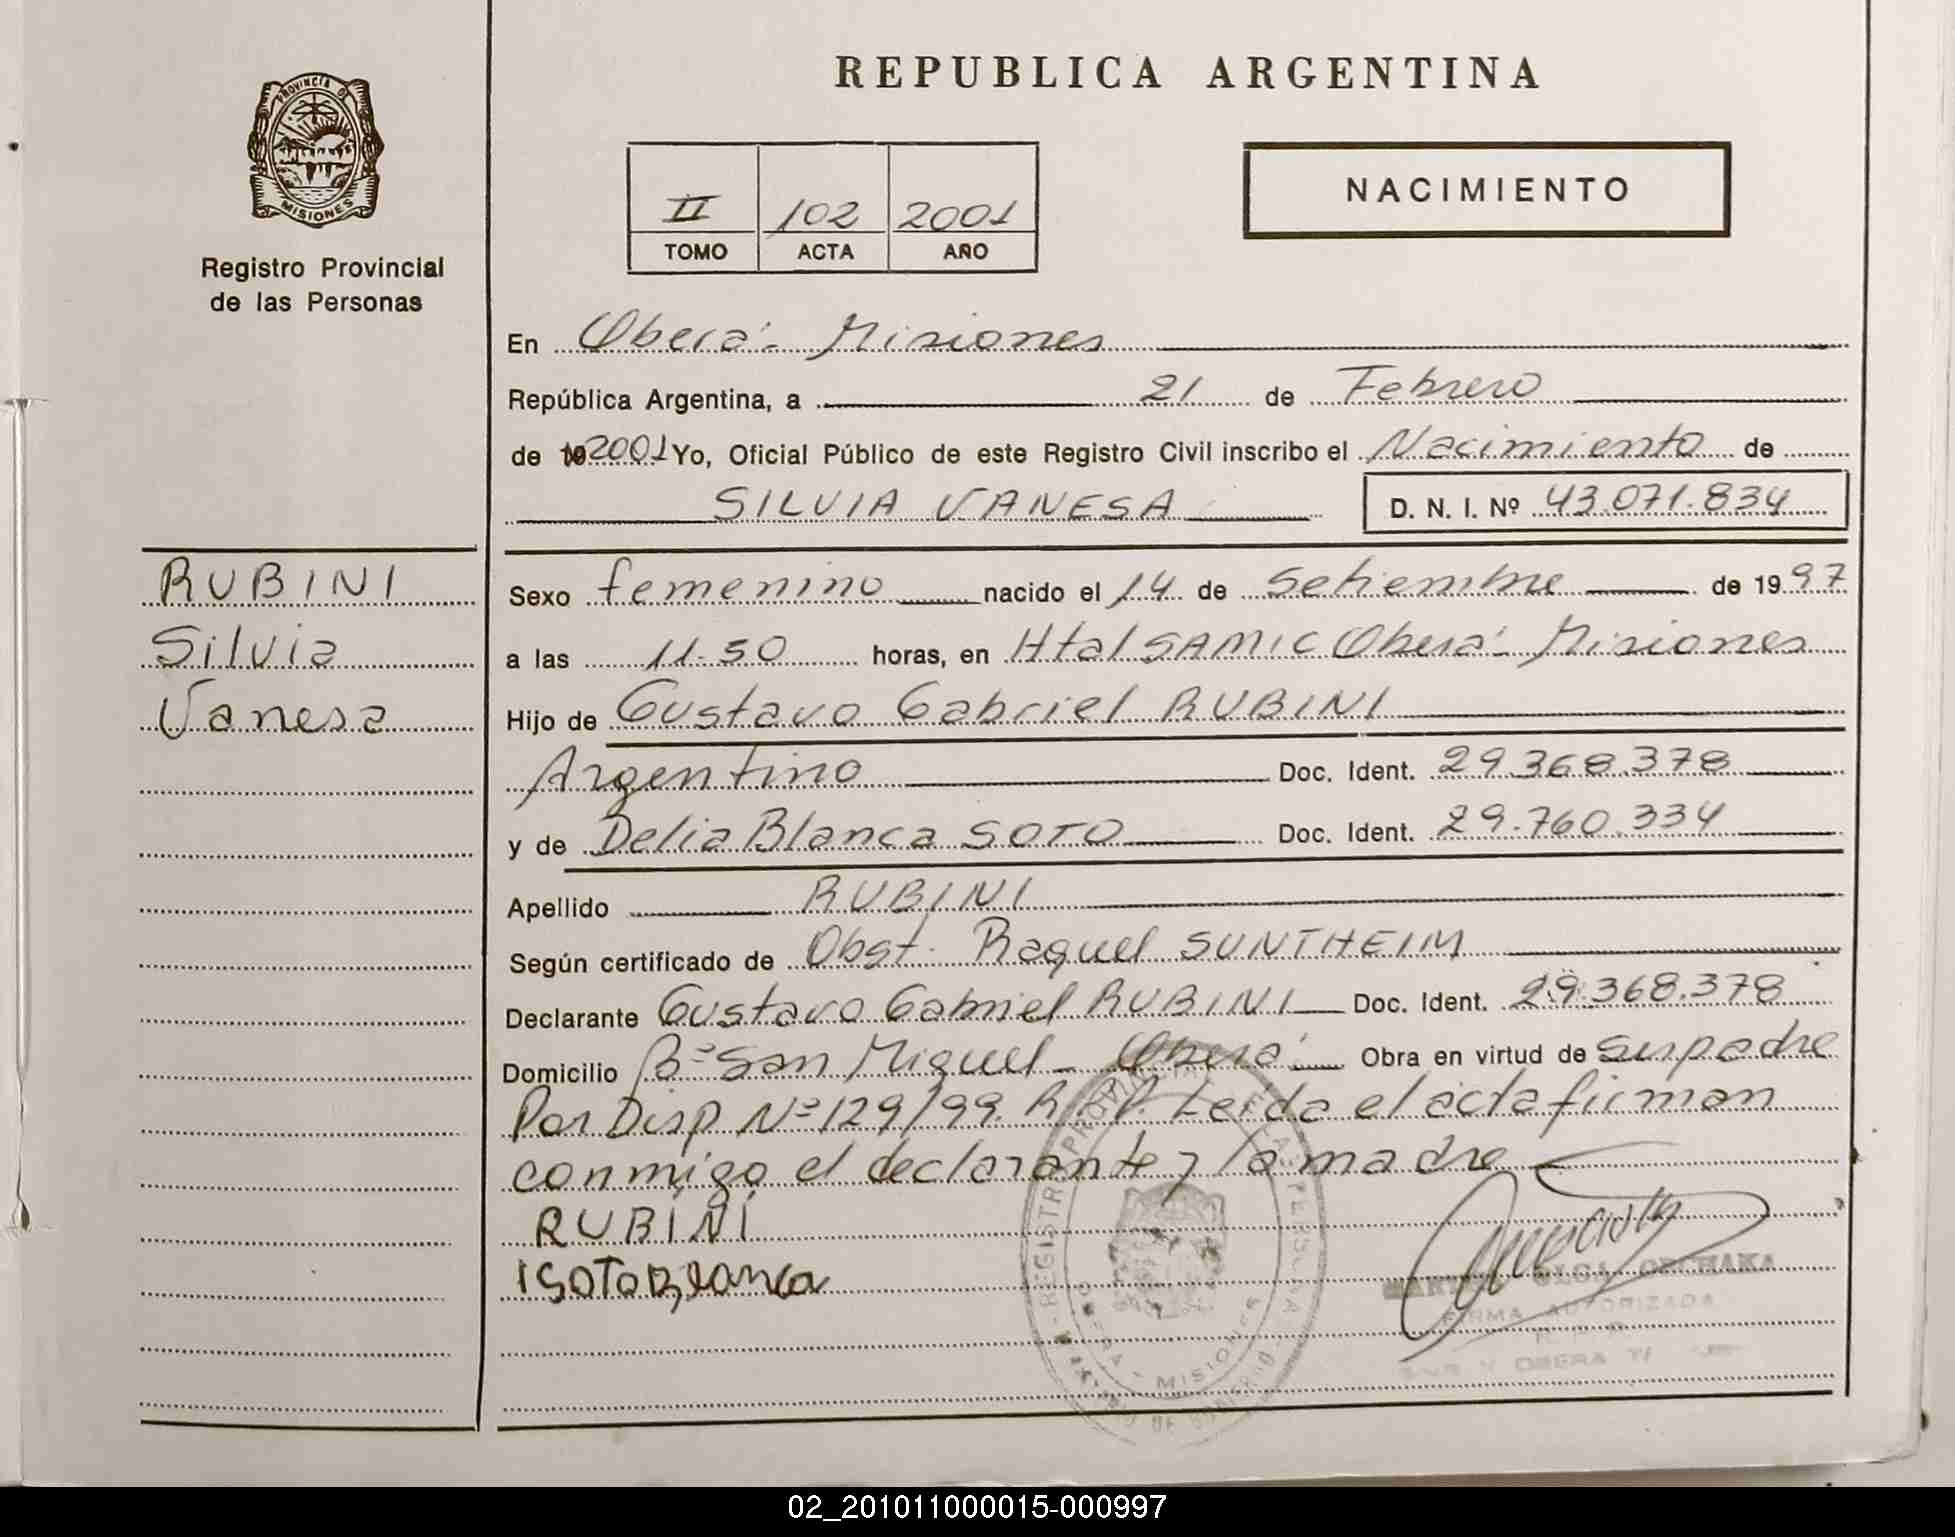 REPUBLICA ARGENTINA
PROVINCIA DE
MISIONES
Registro Provincial
de las Personas
II 102 2001
TOMO ACTA AÑO
NACIMIENTO
En Oberá - Misiones
República Argentina, a 21 de Febrero
de 19 2001 Yo, Oficial Público de este Registro Civil inscribo el Nacimiento de
SILVIA VANESA D. N. I. Nº 43.071.834
RUBINI
Silvia
Vanesa
Sexo femenino nacido el 14 de Setiembre de 1997
a las 11.50 horas, en Htal SAMIC Oberá - Misiones
Hijo de Gustavo Gabriel RUBINI
Argentino Doc. Ident. 29.368.378
y de Delia Blanca SOTO Doc. Ident. 29.760.334
Apellido RUBINI
Según certificado de Obst. Raquel SUNTHEIM
Declarante Gustavo Gabriel RUBINI Doc. Ident. 29.368.378
Domicilio Bº San Miguel - Oberá Obra en virtud de ser padre
Por Disp Nº 129/99. R.P.P. Leída el acta firman
conmigo el declarante y la madre
RUBINI
SOTO Blanca
REGISTRO PROVINCIAL DE LAS PERSONAS
OBERA - MISIONES
OLGA
FIRMA AUTORIZADA
OBERA
02_201011000015-000997